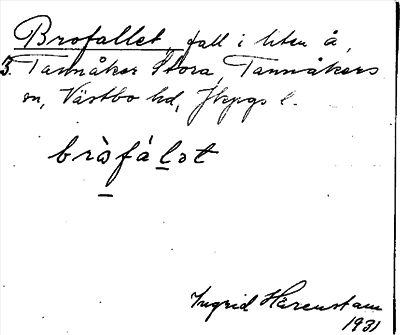 Brofallet, fall i liten å,
3. Tannåker Stora, Tannåkers
sn, Västbo hd, Jkpgs l.
bràfál̲ət
Ingrid Härenstam
1931